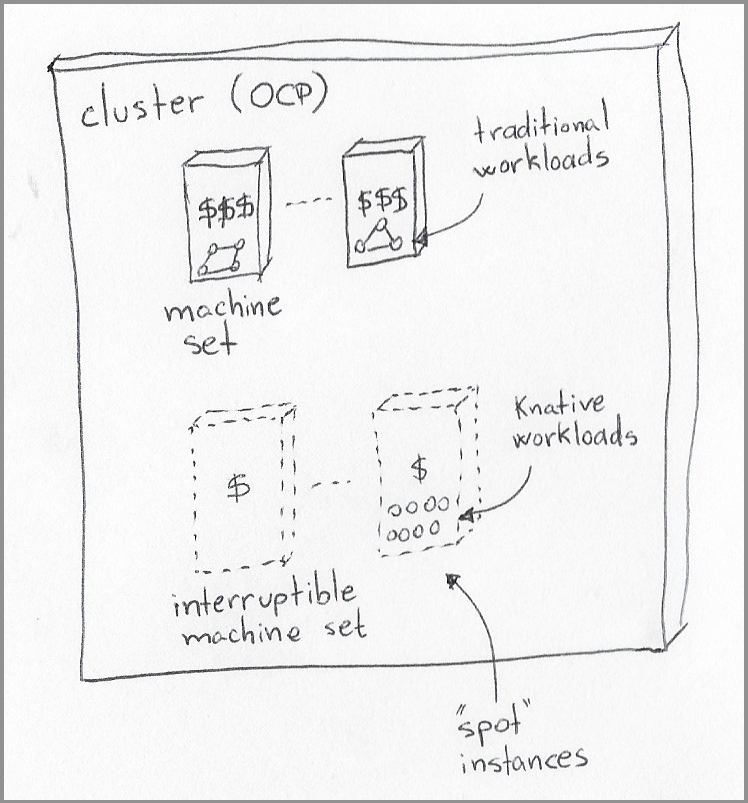 cluster (OCP)
traditional
workloads
$$$
$$$
machine
set
Knative
workloads
$
$
interruptible
machine set
"spot"
instances